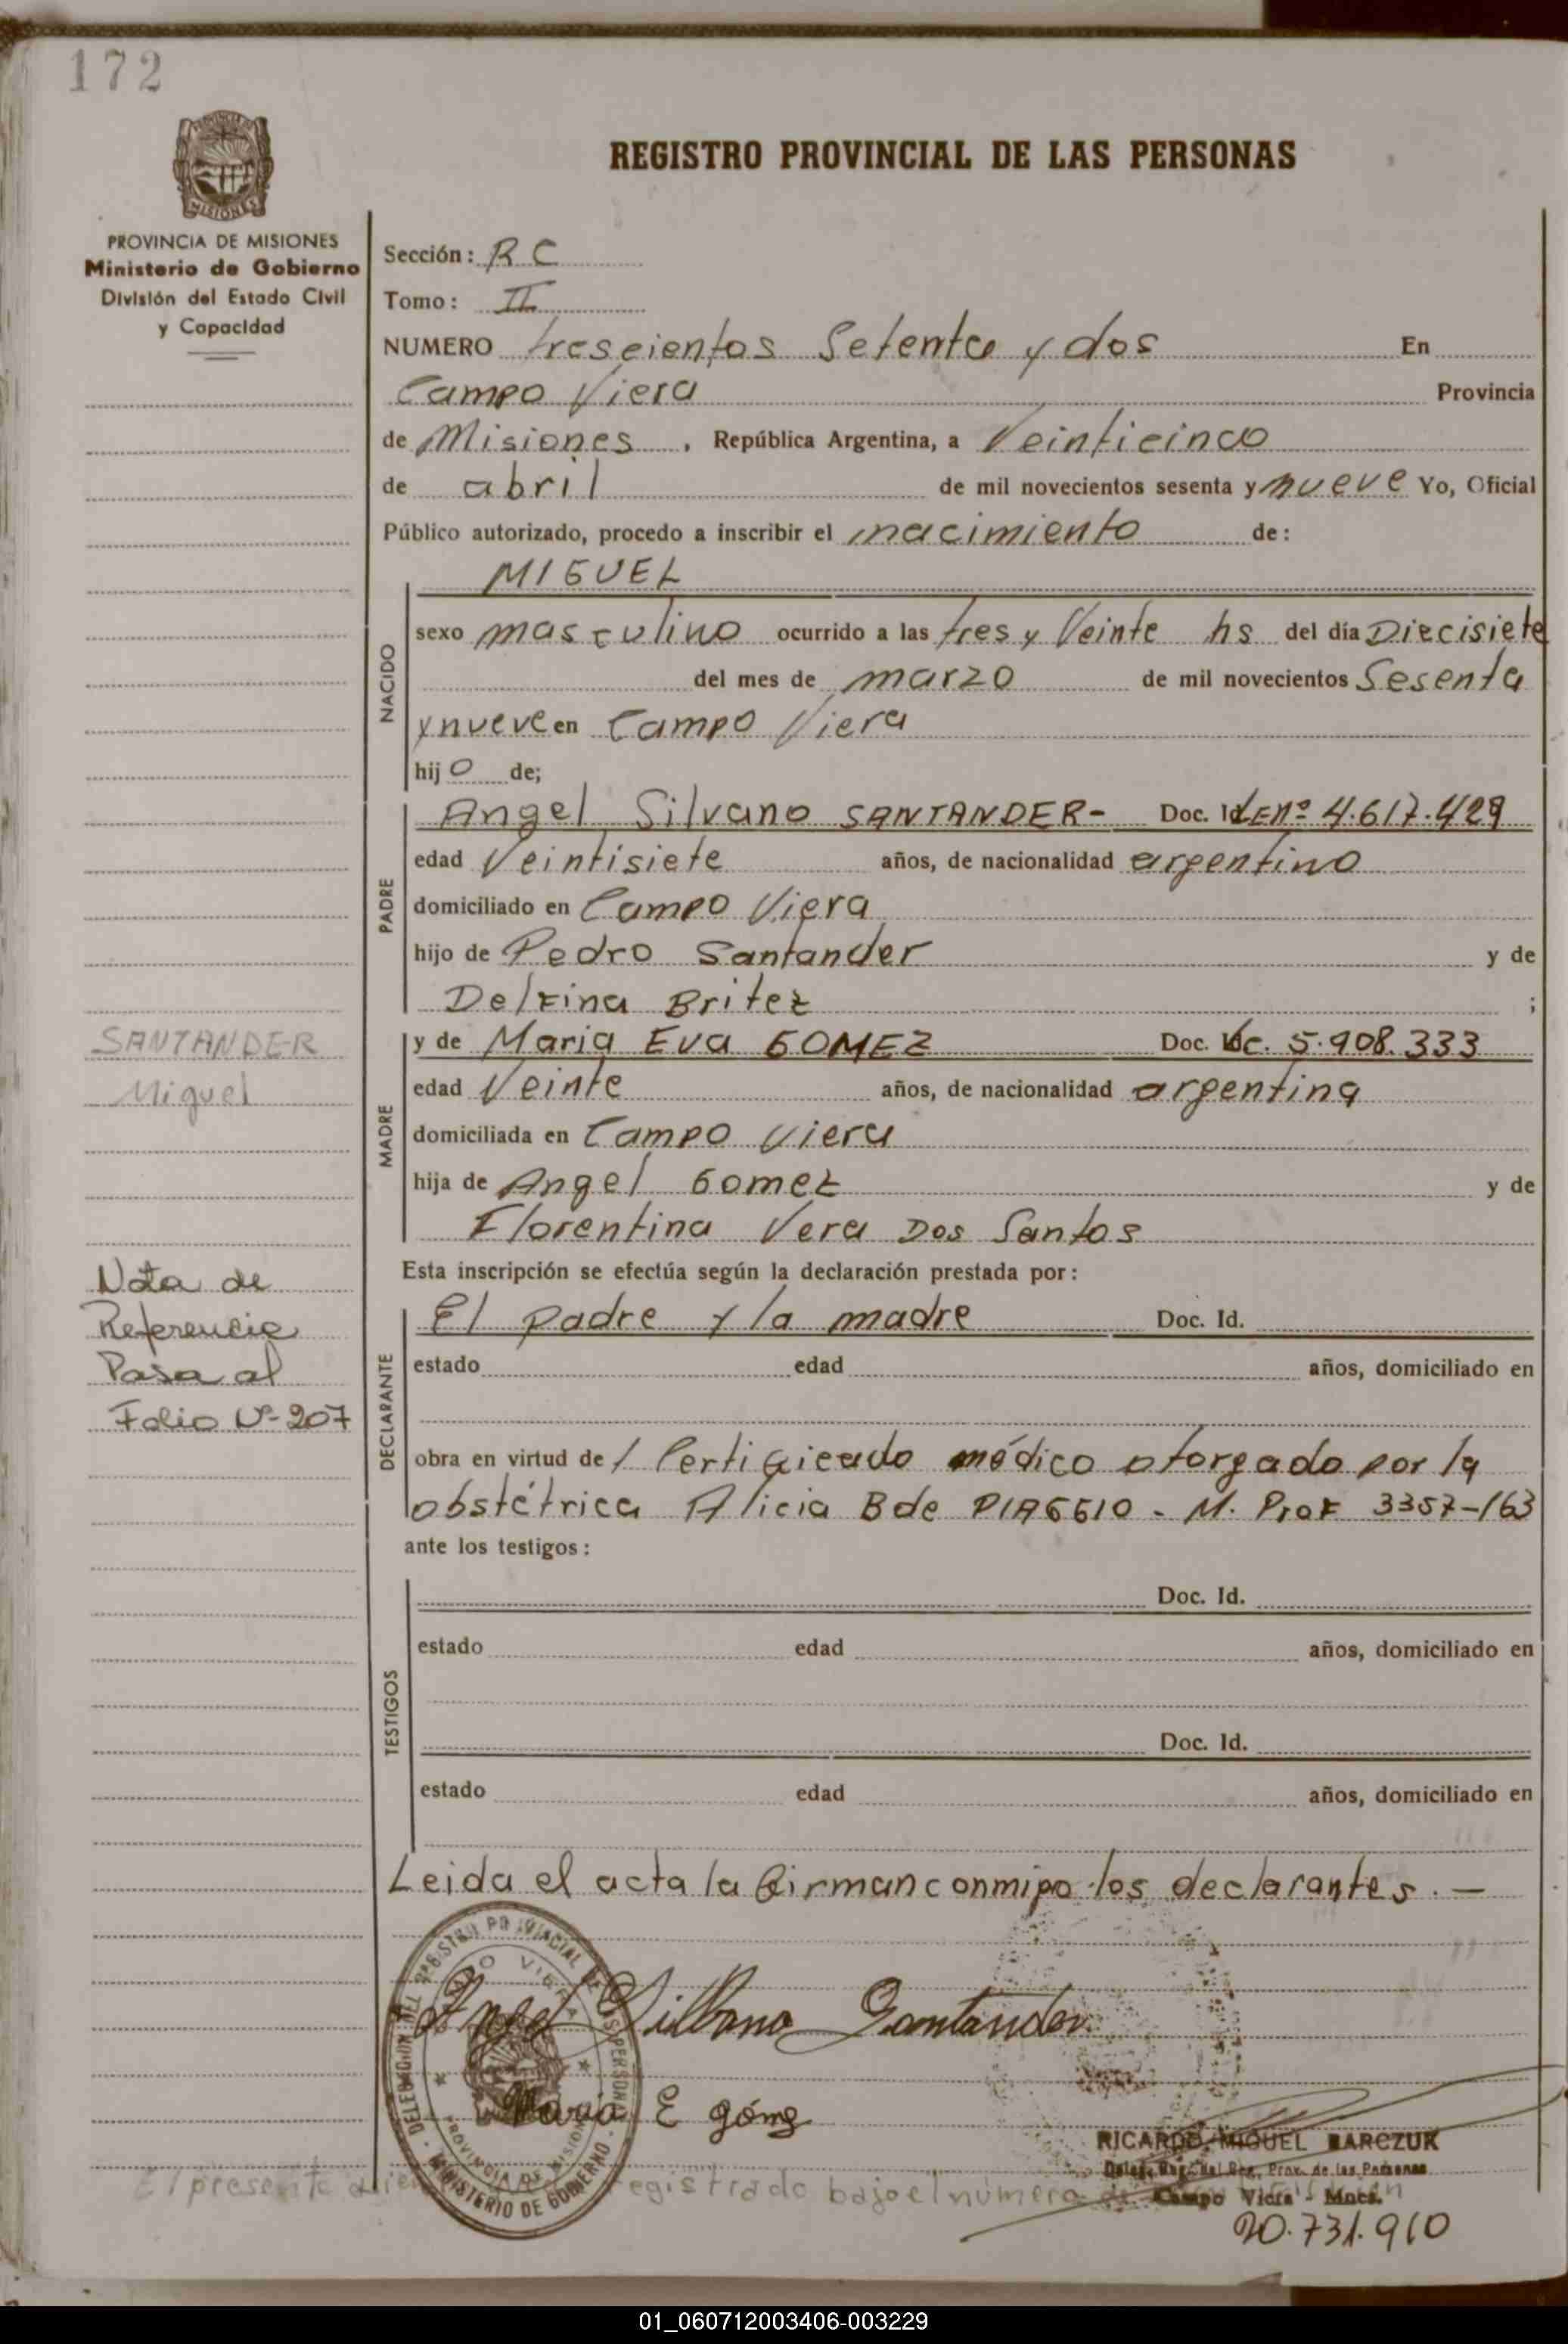 172
MISIONES
PROVINCIA DE MISIONES
Ministerio de Gobierno
División del Estado Civil
y Capacidad
REGISTRO PROVINCIAL DE LAS PERSONAS
Sección: R C
Tomo: II
NUMERO trescientos Setenta y dos En
Campo Viera Provincia
de Misiones, República Argentina, a Veinticinco
de abril de mil novecientos sesenta y nueve Yo, Oficial
Público autorizado, procedo a inscribir el nacimiento de:
MIGUEL
NACIDO
sexo masculino ocurrido a las tres y Veinte hs del día Diecisiete
del mes de marzo de mil novecientos Sesenta
y nueve en Campo Viera
hijo de;
PADRE
Angel Silvano SANTANDER- Doc. Id LE nº 4.617.429
edad Veintisiete años, de nacionalidad argentino
domiciliado en Campo Viera
hijo de Pedro Santander y de
Delfina Britez ;
SANTANDER
Miguel
MADRE
y de Maria Eva GOMEZ Doc. 5.908.333
edad Veinte años, de nacionalidad argentina
domiciliada en Campo Viera
hija de Angel Gomez y de
Florentina Vera Dos Santos
Nota de
Referencia
Pasa al
Folio Nº-207
Esta inscripción se efectúa según la declaración prestada por:
DECLARANTE
El padre y la madre Doc. Id.
estado edad años, domiciliado en
obra en virtud de / Certificado médico otorgado por la
obstétrica Alicia B de PIAGGIO - M. Prof 3357-163
ante los testigos:
TESTIGOS
Doc. Id.
estado edad años, domiciliado en
Doc. Id.
estado edad años, domiciliado en
Leida el acta la firman conmigo los declarantes.—
Angel Silbano Santander
Maria E góme
DELEGACION DEL REGISTRO PROVINCIAL DE LAS PERSONAS
CAMPO VIERA
PROVINCIA DE MISIONES
MINISTERIO DE GOBIERNO
RICARDO MIGUEL BARCZUK
Prov. de las Personas
Campo Viera - Mnes.
El presente registrado bajo el número
20.731.910
01_060712003406-003229